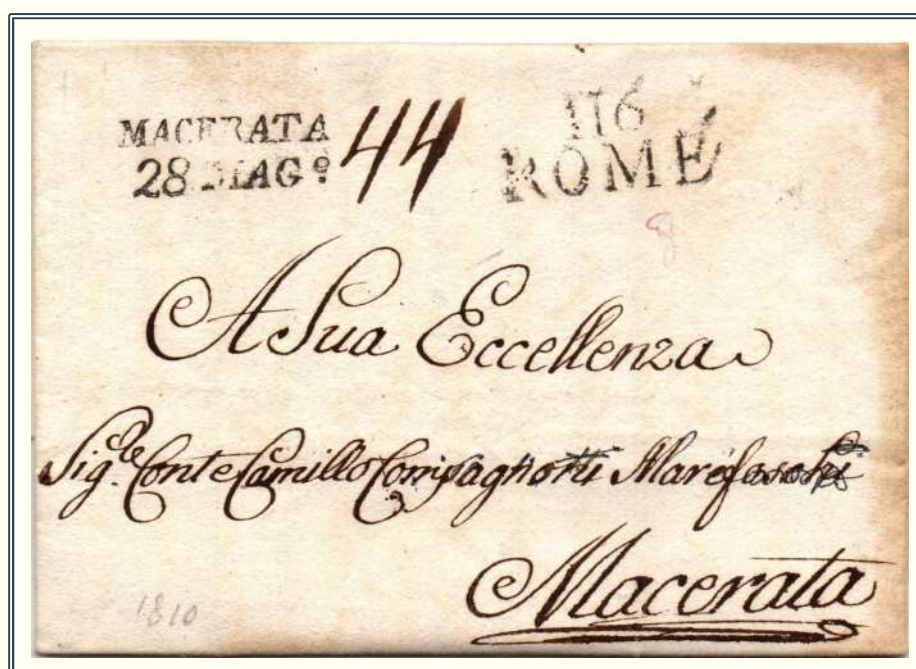 MACERATA
28 MAGº
44
116
ROMÉ
A Sua Eccellenza
Sig.re Conte Camillo Compagnoni Marefoschi
Macerata
1810